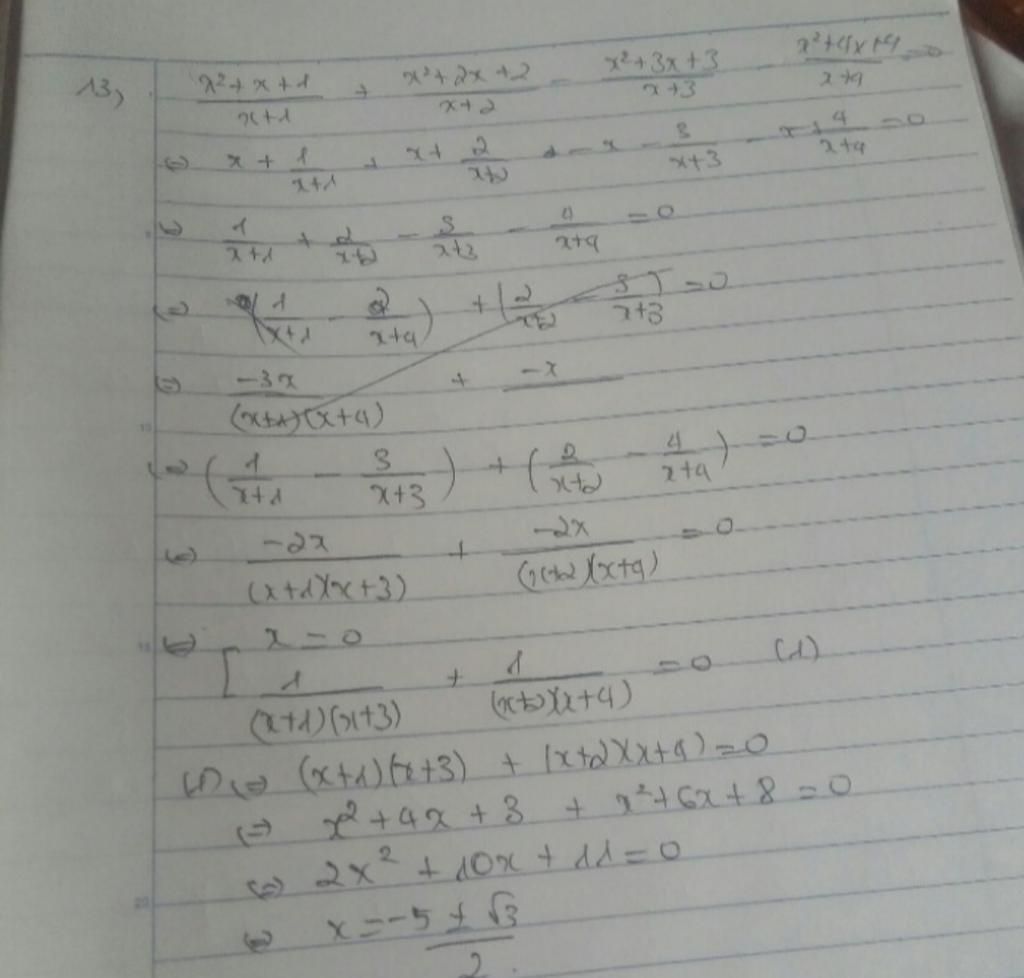 13, \frac{x²+x+1}{x+1} + \frac{x²+2x+2}{x+2} - \frac{x²+3x+3}{x+3} - \frac{x²+4x+4}{x+4} = 0
⇔ x + \frac{1}{x+1} + x + \frac{2}{x+2} + - x - \frac{3}{x+3} - x + \frac{4}{x+4} = 0
⇔ \frac{1}{x+1} + \frac{2}{x+2} - \frac{3}{x+3} - \frac{4}{x+4} = 0
⇔ (\frac{1}{x+1} - \frac{2}{x+4}) + (\frac{2}{x+2} - \frac{3}{x+3}) = 0
⇔ \frac{-3x}{(x+1)(x+4)} + -x
⇔ (\frac{1}{x+1} - \frac{3}{x+3}) + (\frac{2}{x+2} - \frac{4}{x+4}) = 0
⇔ \frac{-2x}{(x+1)(x+3)} + \frac{-2x}{(x+2)(x+4)} = 0
⇔ [ x = 0
\frac{1}{(x+1)(x+3)} + \frac{1}{(x+2)(x+4)} = 0 (1)
(1) ⇔ (x+1)(x+3) + (x+2)(x+4) = 0
⇔ x²+4x+3 + x²+6x+8 = 0
⇔ 2x² + 10x + 11 = 0
⇔ x = \frac{-5 ± √3}{2}